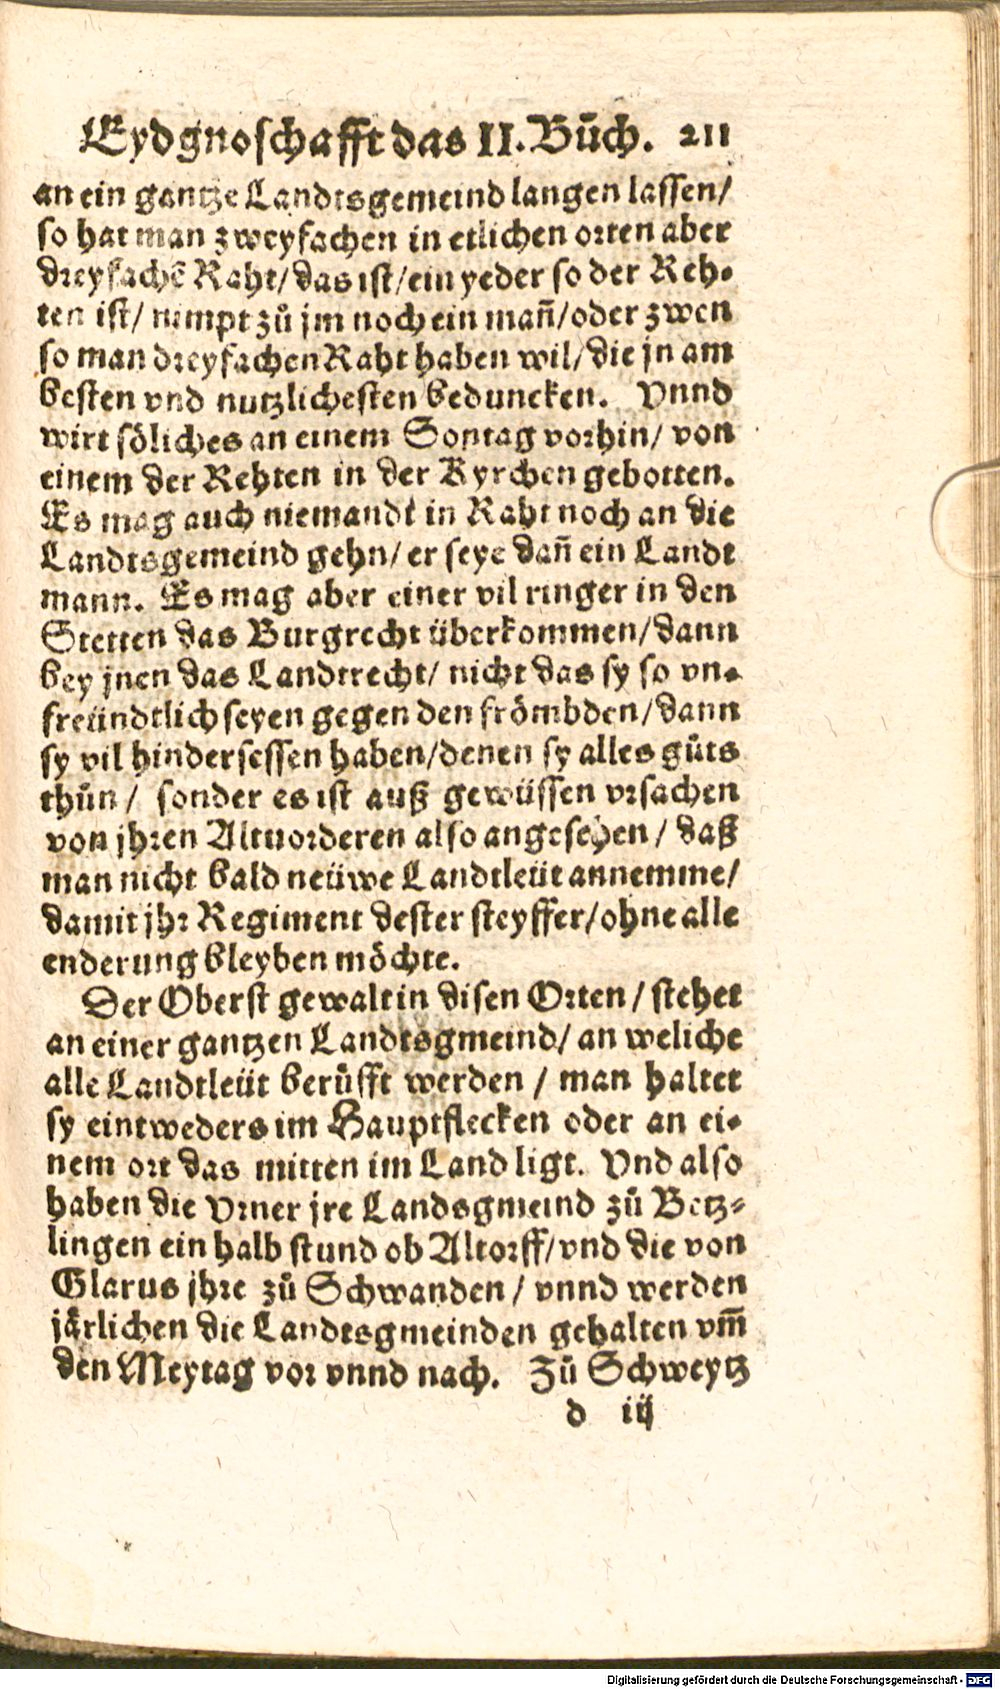 Eydgnoschafft das II. Bůch. 211
an ein gantze Landtsgemeind langen lassen/
so hat man zweyfachen in etlichen orten aber
dreyfachē Raht/das ist/ein yeder so der Reh-
ten ist/ nimpt zů jm noch ein mañ/oder zwen
so man dreyfachen Raht haben wil/die jn am
besten vnd nutzlichesten beduncken. Vnnd
wirt söliches an einem Sontag vorhin/ von
einem der Rehten in der Kyrchen gebotten.
Es mag auch niemandt in Raht noch an die
Landtsgemeind gehn/ er seye dañ ein Landt
mann. Es mag aber einer vil ringer in den
Stetten das Burgrecht überkommen/dann
bey jnen das Landtrecht/ nicht das sy so vn-
freündtlich seyen gegen den frömbden/dann
sy vil hindersessen haben/denen sy alles gůts
thůn/ sonder es ist auß gewüssen vrsachen
von jhren Altuorderen also angesehen/ daß
man nicht bald neüwe Landtleüt annemme/
damit jhr Regiment dester steyffer/ohne alle
enderung bleyben möchte.
Der Oberst gewalt in disen Orten/ stehet
an einer gantzen Landtsgmeind/ an weliche
alle Landtleüt berůfft werden / man haltet
sy eintweders im Hauptflecken oder an ei-
nem ort das mitten im Land ligt. Vnd also
haben die Vrner jre Landsgmeind zů Betz-
lingen ein halb stund ob Altorff/vnd die von
Glarus jhre zů Schwanden/ vnnd werden
järlichen die Landtsgmeinden gehalten vm̄
den Meytag vor vnnd nach. Zů Schweytz
d iij
Digitalisierung gefördert durch die Deutsche Forschungsgemeinschaft - DFG